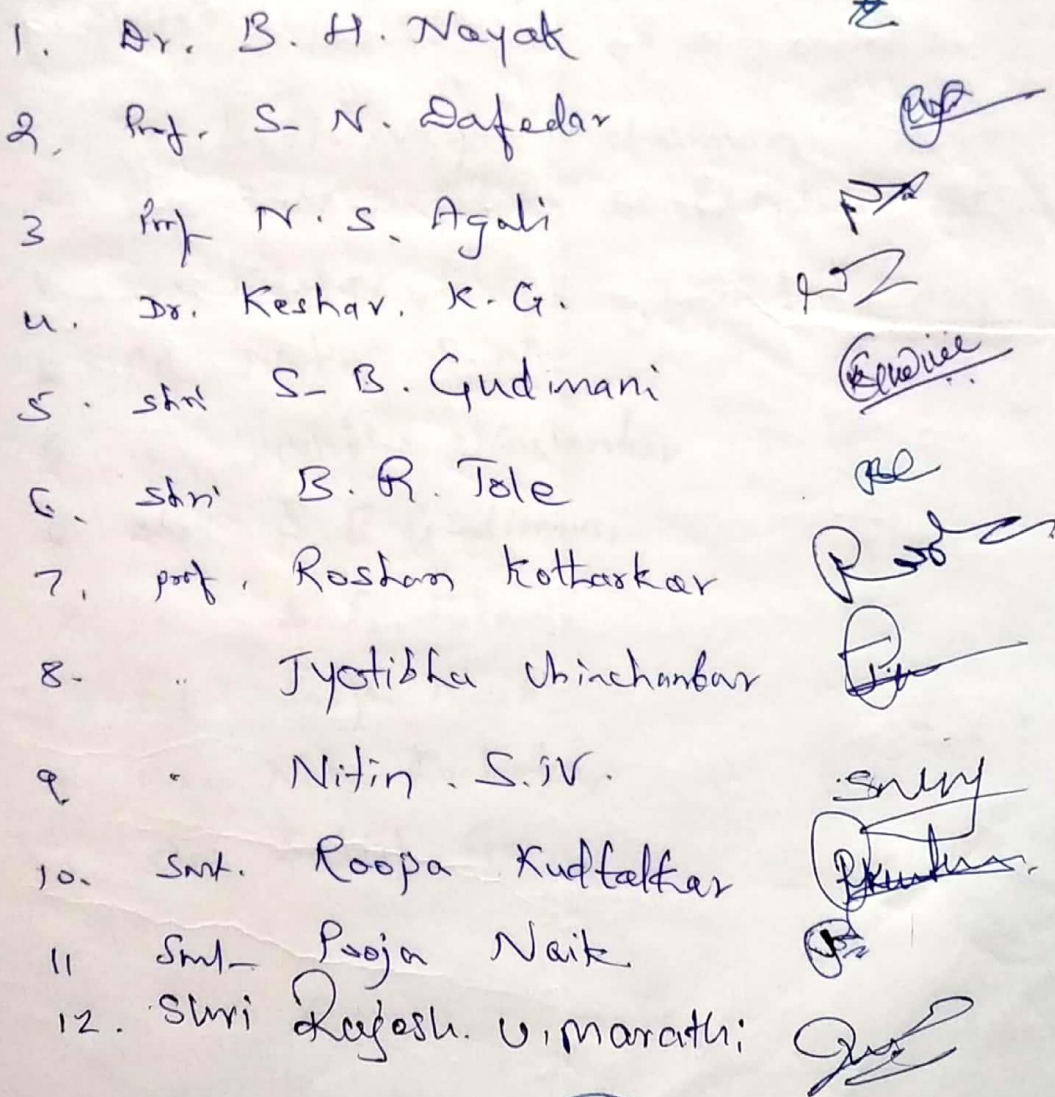 1. Dr. B. H. Nayak
2. Prof. S. N. Dafedar
3 Prof N. S. Agali
4. Dr. Keshav. K. G.
5. shri S. B. Gudimani
6. shri B. R. Tole
7. prof. Roshan Kotharkar
8. " Jyotibha
9 " Nitin. S.
10. Smt. Roopa Kudtalkar
11 Smt Pooja Naik
12. Shri Rajesh. V. Marathi